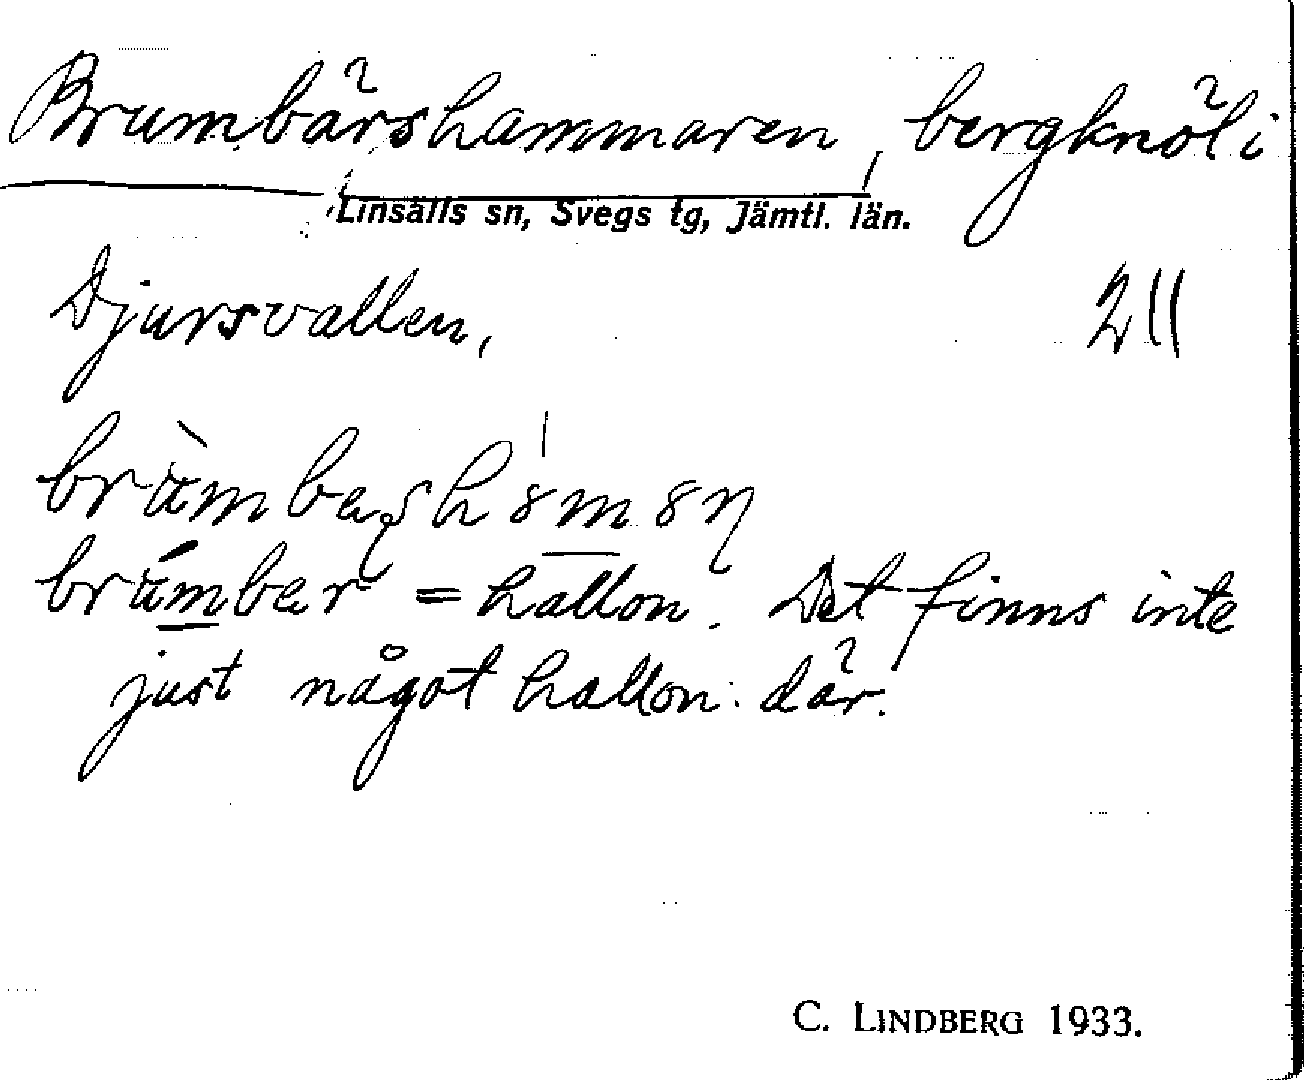 Brumbärshammaren, bergknöl i
Linsälls sn, Svegs tg, Jämtl. län.
Djursvallen, 211
brumber = hallon. Det finns inte
just något hallon där.
C. LINDBERG 1933.